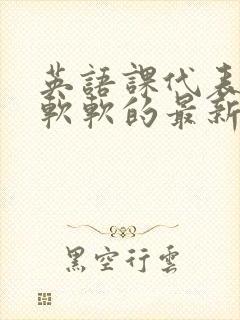 英語課代表
軟軟的最新
黑空行雲